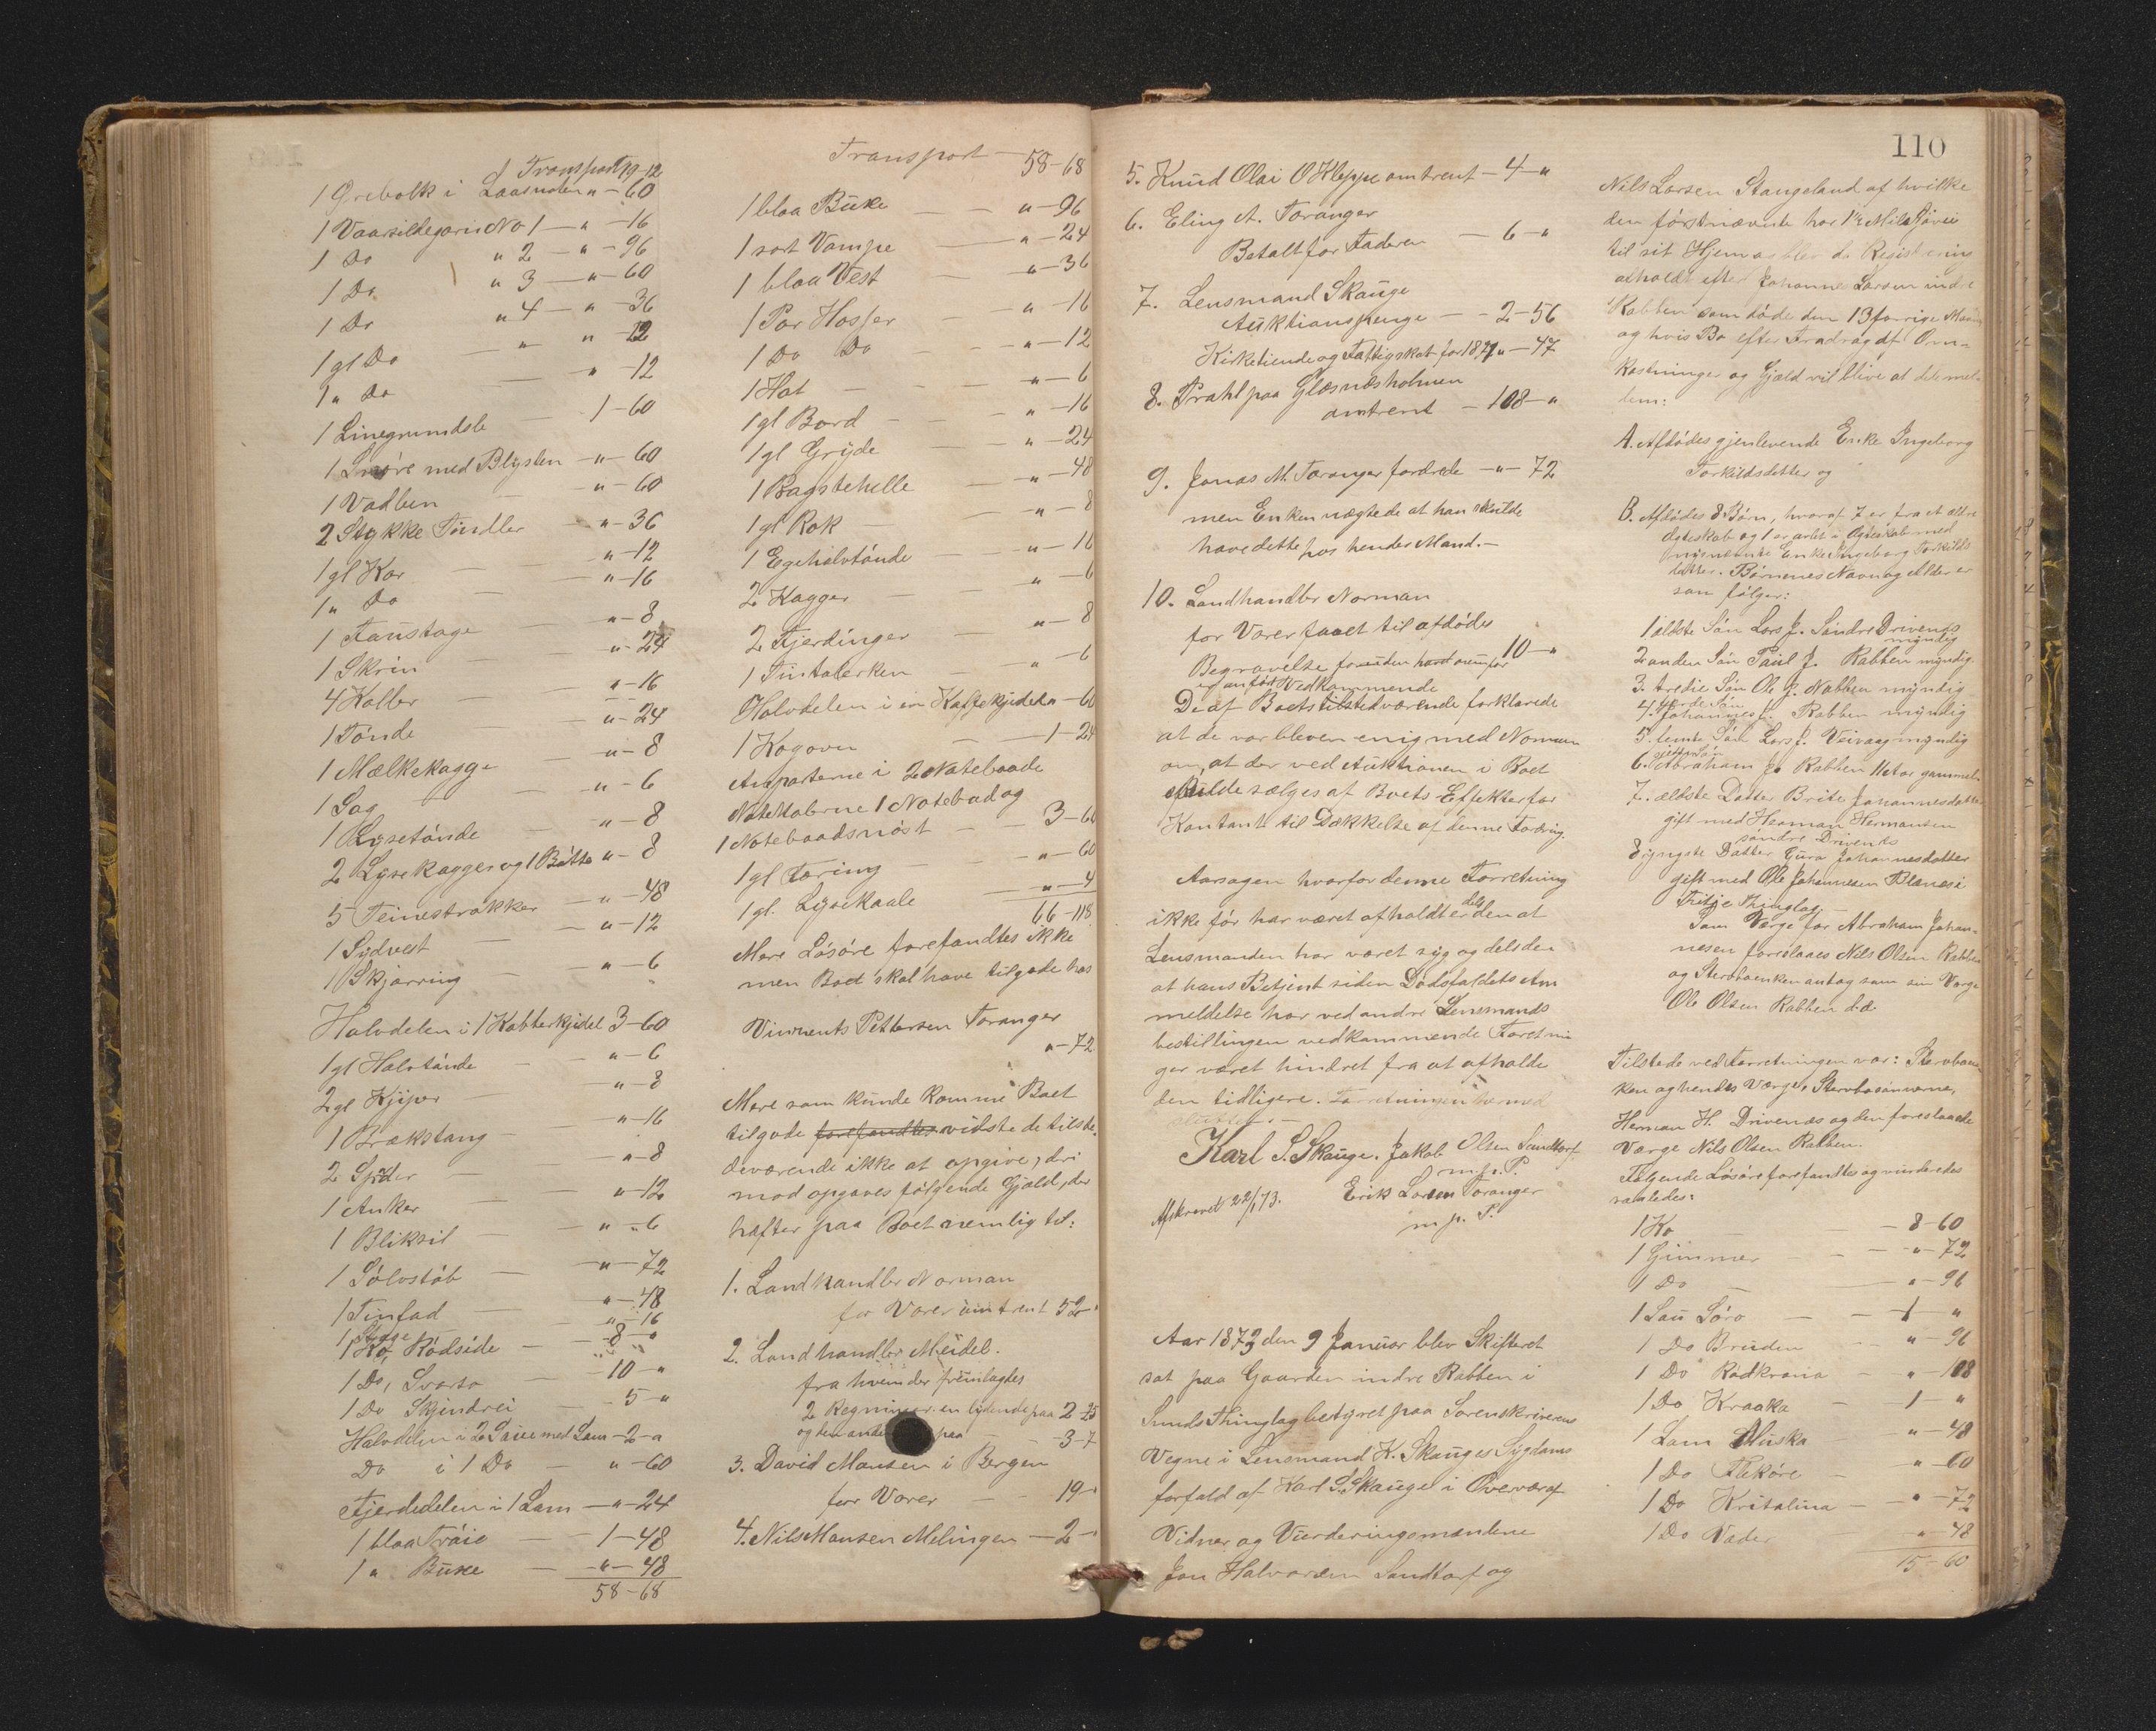 Transport 19-12
1 Grebolk i Laasnoten " - 60
1 Vaarsildegarn No 1 - " - 16
1 Do " 2 - " - 96
1 Do " 3 - " - 60
1 Do " 4 - " - 36
1 gl Do - " " - 12
1 " Do - " - 12
1 Linegrundsle 1 - 60
1 Snøre med Blysten - " - 60
1 Vadben - " - 60
2 Stykke Tindler - " - 36
1 gl Kar - " - 12
1 " Do - " - 16
1 Faustage - " - 8
1 Skrin - " - 24
4 Koller - " - 16
1 Tønde - " - 24
1 Mælkekagge - " - 8
1 Sag - " - 6
1 Lysetønde - " - 8
2 Lysekagger og 1 Bøtte " - 8
5 Teinestrokker - " - 48
1 Sydvest - " - 12
1 Skjørring - " - 6
Halvdelen i 1 Kobberkjedel 3 - 60
1 gl Halvtønde - " - 6
2 gl Kjiper - " - 8
1 Brækstang - " - 16
2 Spder - " - 8
1 Anker - " - 12
1 Bliksil - " - 6
1 Sølvstøb - " - 72
1 Tinfad - " - 48
1 Stage " - 16
1 Ko, Rødside - 8 - "
1 Do, Svarta - 10 - "
1 Do Skjindrei - 5 - "
Halvdelen i 2 Sauer med Lam - 2 - "
Do i 1 Do - " - 60
Fjerdedelen i 1 Lam - " - 24
1 blaa Trøie - 1 - 48
1 " Buxe - " - 48
58 - 68
Transport - 58-68
1 blaa Buxe - " - 96
1 sort Vampe - " - 24
1 blaa Vest - " - 36
1 Par Hosser - " - 16
1 Do Do - " - 12
1 Hat - " - 6
1 gl Bord - " - 16
1 gl Gryde - " - 24
1 Bagstehelle - " - 48
1 gl Rok - " - 8
1 Egehalvtønde - " - 16
2 Kagger - " - 6
2 Fjerdinger - " - 8
1 Tintalerken - " - 6
Halvdelen i en Kaffekjedel " - 60
1 Kogovn - 1 - 24
Anparterne i 2 Notebaade
Notetolerne 1 Notebad og
1 Notebaadsnøst - 3 - 60
1 gl Færing - " - 60
1 gl. Lysekaale - " - 4
66 - 118
Mere Løsøre forefandtes ikke
men Boet skal have tilgode hos
Vinnents Pettersen Toranger
" - 72
Mere som kunde komme Boet
tilgode forefandtes vidste de tilste-
deværende ikke at opgive, deri
mod opgaves følgende Gjæld, der
hæfter paa Boet nemlig til:
1. Landhandler Norman
for Varer omtrent 52 - "
2. Landhandler Meidel.
fra hvem der fremlagdes
2 Regninger en lydende paa 2 - 25
og den anden paa - 3 - 7
3. David Monsen i Bergen
for Varer - 19 - "
4. Nils Monsen Melingen - 2 - "
5. Knud Olai O Kleppe omtrent - 4 - "
6. Eling A. Toranger
Betalt for Faderen - 6 - "
7. Lensmand Skauge
Auktionspenge - 2 - 56
Kirketiende og Fattigskat for 1871 " - 47
8. Prahl paa Glæsnæsholmen
omtrent - 108 - "
9. Jonas M. Toranger fordrede - " - 72
men Enken nægtede at han skulde
have dette hos hendes Mand. -
10. Landhandler Norman
for Varer faaet til afdødes
Begravelse foruden hvad ovenfor 10 - "
er anført Vedkommende
De af Boets tilstedværende forklarede
at de var bleven enig med Norman
om, at der ved Auktionen i Boet
skulde sælges af Boets Effekter for
Kontant til Dækkelse af denne Fodring.
Aarsagen hvorfor denne Forretning
ikke før har været afholdt er dels den at
Lensmanden har været syg og dels den
at hans Betjent siden Dødsfaldets An
meldelse har ved andre Lensmands
bestillingen vedkommende Foretnin
ger været hindret fra at afholde
den tidligere. Forretningen hermed
sluttet. -
Karl S. Skauge. Jakob Olsen Sandtorf
m. p. P.
Erik Larsen Toranger
m. p. P.
Afskrevet 22/1 73.
Aar 1873 den 9 Januar blev Skifteret
sat paa Gaarden indre Rabben i
Sunds Thinglag bestyret paa Sorenskriverens
Vegne i Lensmand K. Skauges Sygdoms
forfald af Karl S. Skauge i Overvær af
Vidner og Vurderingsmændene
Jon Halvorsen Sandtorf og
110
Nils Larsen Stangeland af hvilke
den førstnævnte har 1 1/2 Mils Reise
til sit Hjem og blev da Registrering
afholdt efter Johannes Larsen indre
Rabben som døde den 13 forrige Maan
og hvis Bo efter Fradrag af Om-
kostninger og Gjæld vil blive at dele mel-
lem:
A. Afdødes gjenlevende Enke Ingeborg
Torkildsdatter og
B. Afdødes 8 Børn, hvoraf 7 er fra et ældre
Ægteskab og 1 er avlet i Ægteskab med
nysnævnte Enke Ingeborg Torkilds
datter. Børnenes Navn og Alder er
som følger:
1 ældste Søn Lars J. Søndre Drivenæs
myndig
2 anden Søn Paul J. Rabben myndig
3. tredie Søn Ole J. Nabben myndig
4. fjerde Søn Johannes J. Rabben myndig
5. femte Søn Lars J. Veivaag myndig
6. sjette Søn Abraham J. Rabben 11 Aar gammel
7. ældste Datter Brite Johannesdatter
gift med Herman Hermansen
søndre Drivenæs
8 yngste Datter Gura Johannesdatter
gift med Ole Johannesen Blænæs i
Fitje Thinglag. -
Som Værge for Abraham Johan-
nesen foreslaaes Nils Olsen Rabben
og Stervboenken antog som sin Værge
Ole Olsen Rabben d.æ
Tilstede ved Forretningen var: Stervboen
ken og hendes Værge, Stervbosønnerne,
Herman H. Drivenæs og den foreslaaede
Værge Nils Olsen Rabben.
Følgende Løsøre forefandtes og vurderedes
saaledes:
1 Ko - 8 - 60
1 Gimmer - " - 72
1 Do - " - 96
1 Sau Søro - 1 - "
1 Do Bruden - " - 96
1 Do Rødkrona - " - 108
1 Do Kraaka - 1 - "
1 Lam Muska - " - 48
1 Do Flekøre - " - 60
1 Do Kristlina - " - 72
1 Do Vader - " - 48
15 - 60